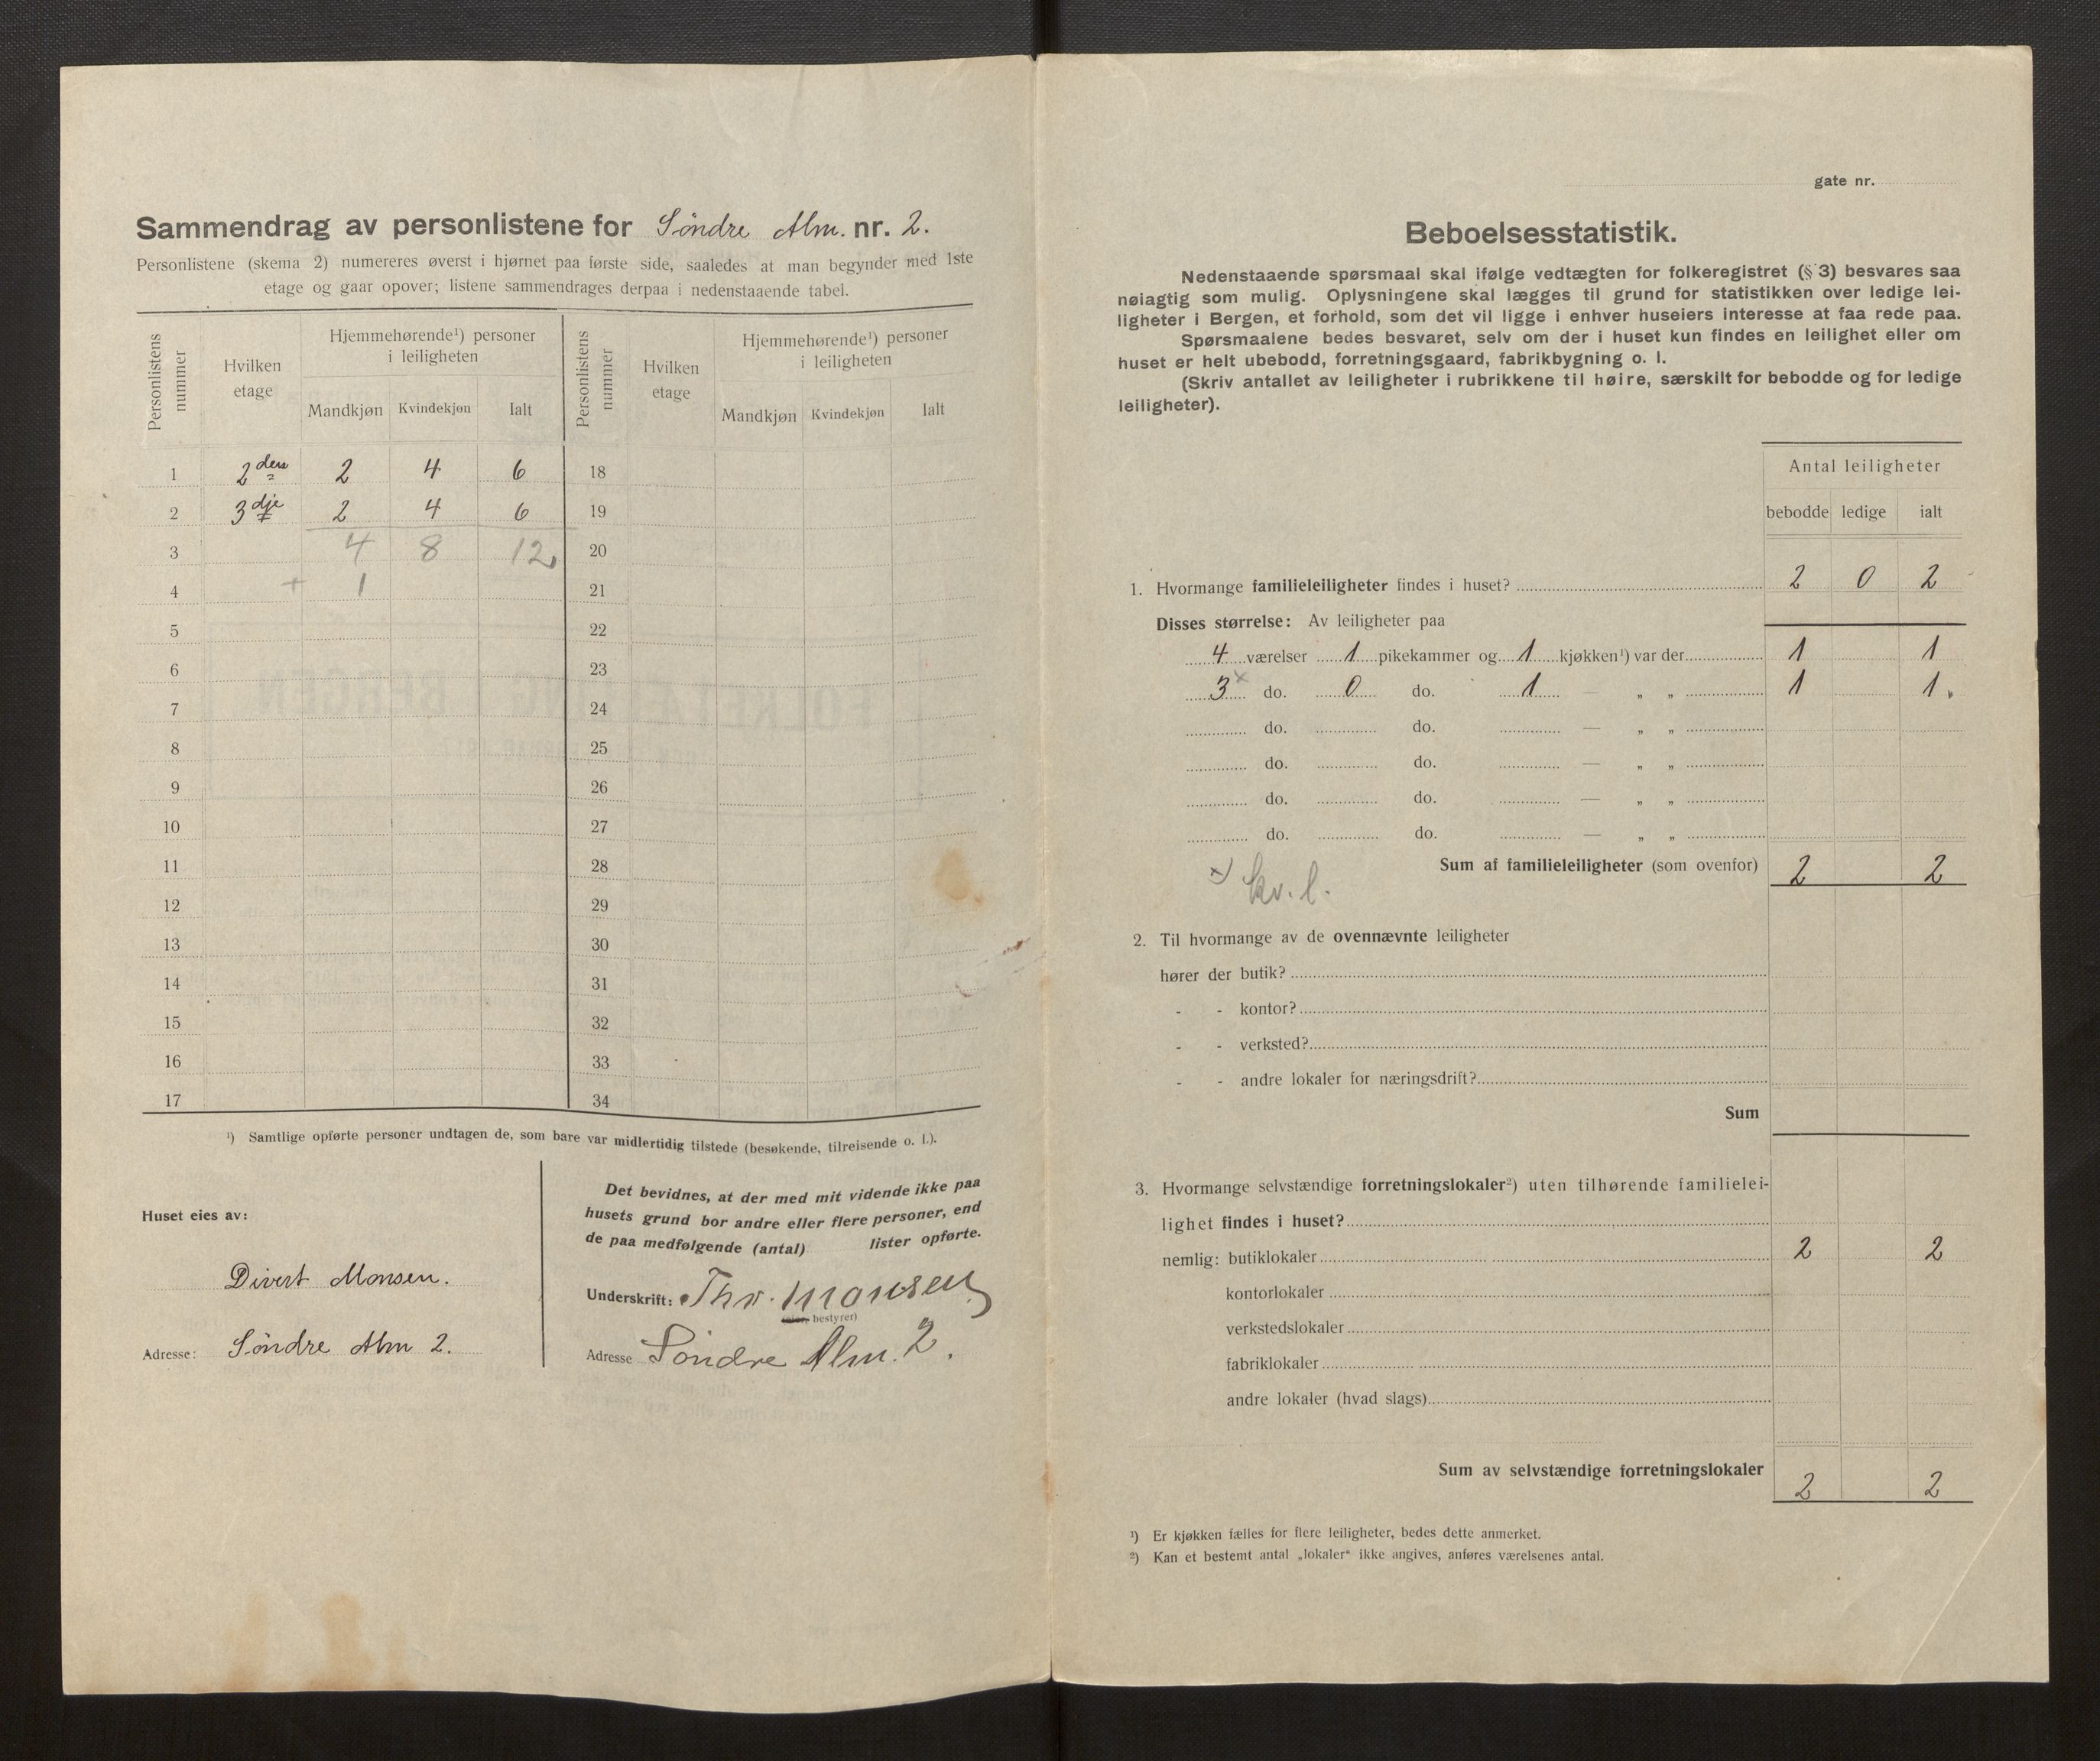 Sammendrag av personlistene for Søndre Alm. nr. 2.
Personlistene (skema 2) numereres øverst i hjørnet paa første side, saaledes at man begynder med 1ste
etage og gaar opover; listene sammendrages derpaa i nedenstaaende tabel.
Personlistens nummer
Hvilken etage
Hjemmehørende¹) personer i leiligheten
Mandkjøn Kvindekjøn Ialt
Personlistens nummer
Hvilken etage
Hjemmehørende¹) personer i leiligheten
Mandkjøn Kvindekjøn Ialt
1 2den 2 4 6 18
2 3dje 2 4 6 19
3 4 8 12 20
4 + 1 21
5 22
6 23
7 24
8 25
9 26
10 27
11 28
12 29
13 30
14 31
15 32
16 33
17 34
¹) Samtlige opførte personer undtagen de, som bare var midlertidig tilstede (besøkende, tilreisende o. l.).
Huset eies av:
Divert Monsen.
Adresse: Søndre Alm 2.
Det bevidnes, at der med mit vidende ikke paa
husets grund bor andre eller flere personer, end
de paa medfølgende (antal) lister opførte.
Underskrift: Thv. Monsen
(eier, bestyrer)
Adresse Søndre Alm. 2.
gate nr.
Beboelsesstatistik.
Nedenstaaende spørsmaal skal ifølge vedtægten for folkeregistret (§ 3) besvares saa
nøiagtig som mulig. Oplysningene skal lægges til grund for statistikken over ledige lei-
ligheter i Bergen, et forhold, som det vil ligge i enhver huseiers interesse at faa rede paa.
Spørsmaalene bedes besvaret, selv om der i huset kun findes en leilighet eller om
huset er helt ubebodd, forretningsgaard, fabrikbygning o. l.
(Skriv antallet av leiligheter i rubrikkene til høire, særskilt for bebodde og for ledige
leiligheter).
Antal leiligheter
bebodde ledige ialt
1. Hvormange familieleiligheter findes i huset? 2 0 2
Disses størrelse: Av leiligheter paa
4 værelser 1 pikekammer og 1 kjøkken¹) var der 1 1
3 x do. 0 do. 1 — „ „ 1 1.
do. do. — „ „
do. do. — „ „
do. do. — „ „
do. do. — „ „
Sum af familieleiligheter (som ovenfor) 2 2
x) kv. l.
2. Til hvormange av de ovennævnte leiligheter
hører der butik?
- - kontor?
- - verksted?
- - andre lokaler for næringsdrift?
Sum
3. Hvormange selvstændige forretningslokaler²) uten tilhørende familielei-
lighet findes i huset?
nemlig: butiklokaler 2 2
kontorlokaler
verkstedslokaler
fabriklokaler
andre lokaler (hvad slags)
Sum av selvstændige forretningslokaler 2 2
¹) Er kjøkken fælles for flere leiligheter, bedes dette anmerket.
²) Kan et bestemt antal „lokaler“ ikke angives, anføres værelsenes antal.